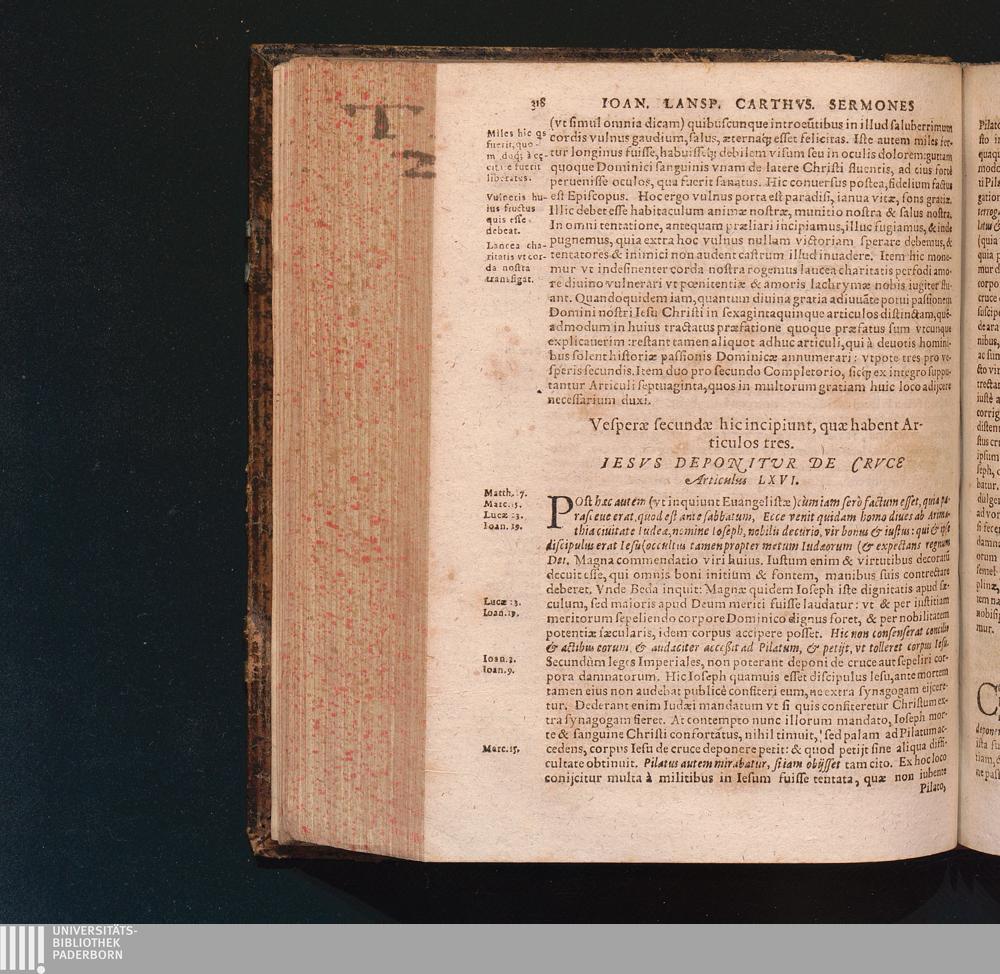 318 IOAN. LANSP. CARTHVS. SERMONES
(vt simul omnia dicam) quibuscunque introeũtibus in illud saluberrimum
cordis vulnus gaudium, salus, æternaq́; esset felicitas. Iste autem miles fer-
tur longinus fuisse, habuisseq́; debilem visum seu in oculis dolorem: guttam
quoque Dominici sanguinis vnam de latere Christi fluentis, ad eius fortè
peruenisse oculos, qua fuerit sanatus. Hic conuersus postea, fidelium factus
est Episcopus. Hoc ergo vulnus porta est paradisi, ianua vitæ, fons gratiæ.
Illic debet esse habitaculum animæ nostræ, munitio nostra & salus nostra.
In omni tentatione, antequam præliari incipiamus, illuc fugiamus, & inde
pugnemus, quia extra hoc vulnus nullam victoriam sperare debemus, &
tentatores & inimici non audent castrum illud inuadere. Item hic mone-
mur vt indesinenter corda nostra rogemus lancea charitatis perfodi amo-
re diuino vulnerari vt pœnitentiæ & amoris lachrymæ nobis iugiter flu-
ant. Quandoquidem iam, quantum diuina gratia adiuuãte potui passionem
Domini nostri Iesu Christi in sexagintaquinque articulos distinctam, quẽ-
admodum in huius tractatus præfatione quoque præfatus sum vtcunque
explicauerim: restant tamen aliquot adhuc articuli, qui à deuotis homini-
bus solent historiæ passionis Dominicæ annumerari: vtpote tres pro ve-
speris secundis. Item duo pro secundo Completorio, sicq́; ex integro suppu-
tantur Articuli septuaginta, quos in multorum gratiam huic loco adijcere
necessarium duxi.
Miles hic qs
fuerit, quo-
liberatus.
Vulneris hu-
ius fructus
quis esse
debeat.
Lancea cha-
ritatis vt cor-
da nostra
transfigat.
Vesperæ secundæ hic incipiunt, quæ habent Ar-
ticulos tres.
IESVS DEPONITVR DE CRVCE
Articulus LXVI.
Matth. 27.
Marc. 15.
Lucæ 23.
Ioan. 19.
POst hæc autem (vt inquiunt Euangelistæ) cùm iam serò factum esset, quia pa-
rasceue erat, quod est ante sabbatum, Ecce venit quidam homo diues ab Arima-
thia ciuitate Iudeæ, nomine Ioseph, nobilis decurio, vir bonus & iustus: qui & ipse
discipulus erat Iesu (occultus tamen propter metum Iudæorum (& expectans regnum
Dei. Magna commendatio viri huius. Iustum enim & virtutibus decoratũ
decuit esse, qui omnis boni initium & fontem, manibus suis contrectare
deberet. Vnde Beda inquit: Magnæ quidem Ioseph iste dignitatis apud sæ-
culum, sed maioris apud Deum meriti fuisse laudatur: vt & per iustitiam
meritorum sepeliendo corpore Dominico dignus foret, & per nobilitatem
potentiæ sæcularis, idem corpus accipere posset. Hic non consenserat concilio
& actibus eorum, & audaciter accessit ad Pilatum, & petijt, vt tolleret corpus Iesu.
Secundùm leges Imperiales, non poterant deponi de cruce aut sepeliri cor-
pora damnatorum. Hic Ioseph quamuis esset discipulus Iesu, ante mortem
tamen eius non audebat publicè confiteri eum, ne extra synagogam eijcere-
tur. Dederant enim Iudæi mandatum vt si quis confiteretur Christum ex-
tra synagogam fieret. At contempto nunc illorum mandato, Ioseph mor-
te & sanguine Christi confortatus, nihil timuit, sed palam ad Pilatum ac-
cedens, corpus Iesu de cruce deponere petit: & quod petijt sine aliqua diffi-
cultate obtinuit. Pilatus autem mirabatur, si iam obijsset tam cito. Ex hoc loco
conijcitur multa à militibus in Iesum fuisse tentata, quæ non iubente
Pilato,
Lucæ 23.
Ioan. 19.
Ioan. 2.
Ioan. 9.
Marc. 15.
UNIVERSITÄTS-
BIBLIOTHEK
PADERBORN